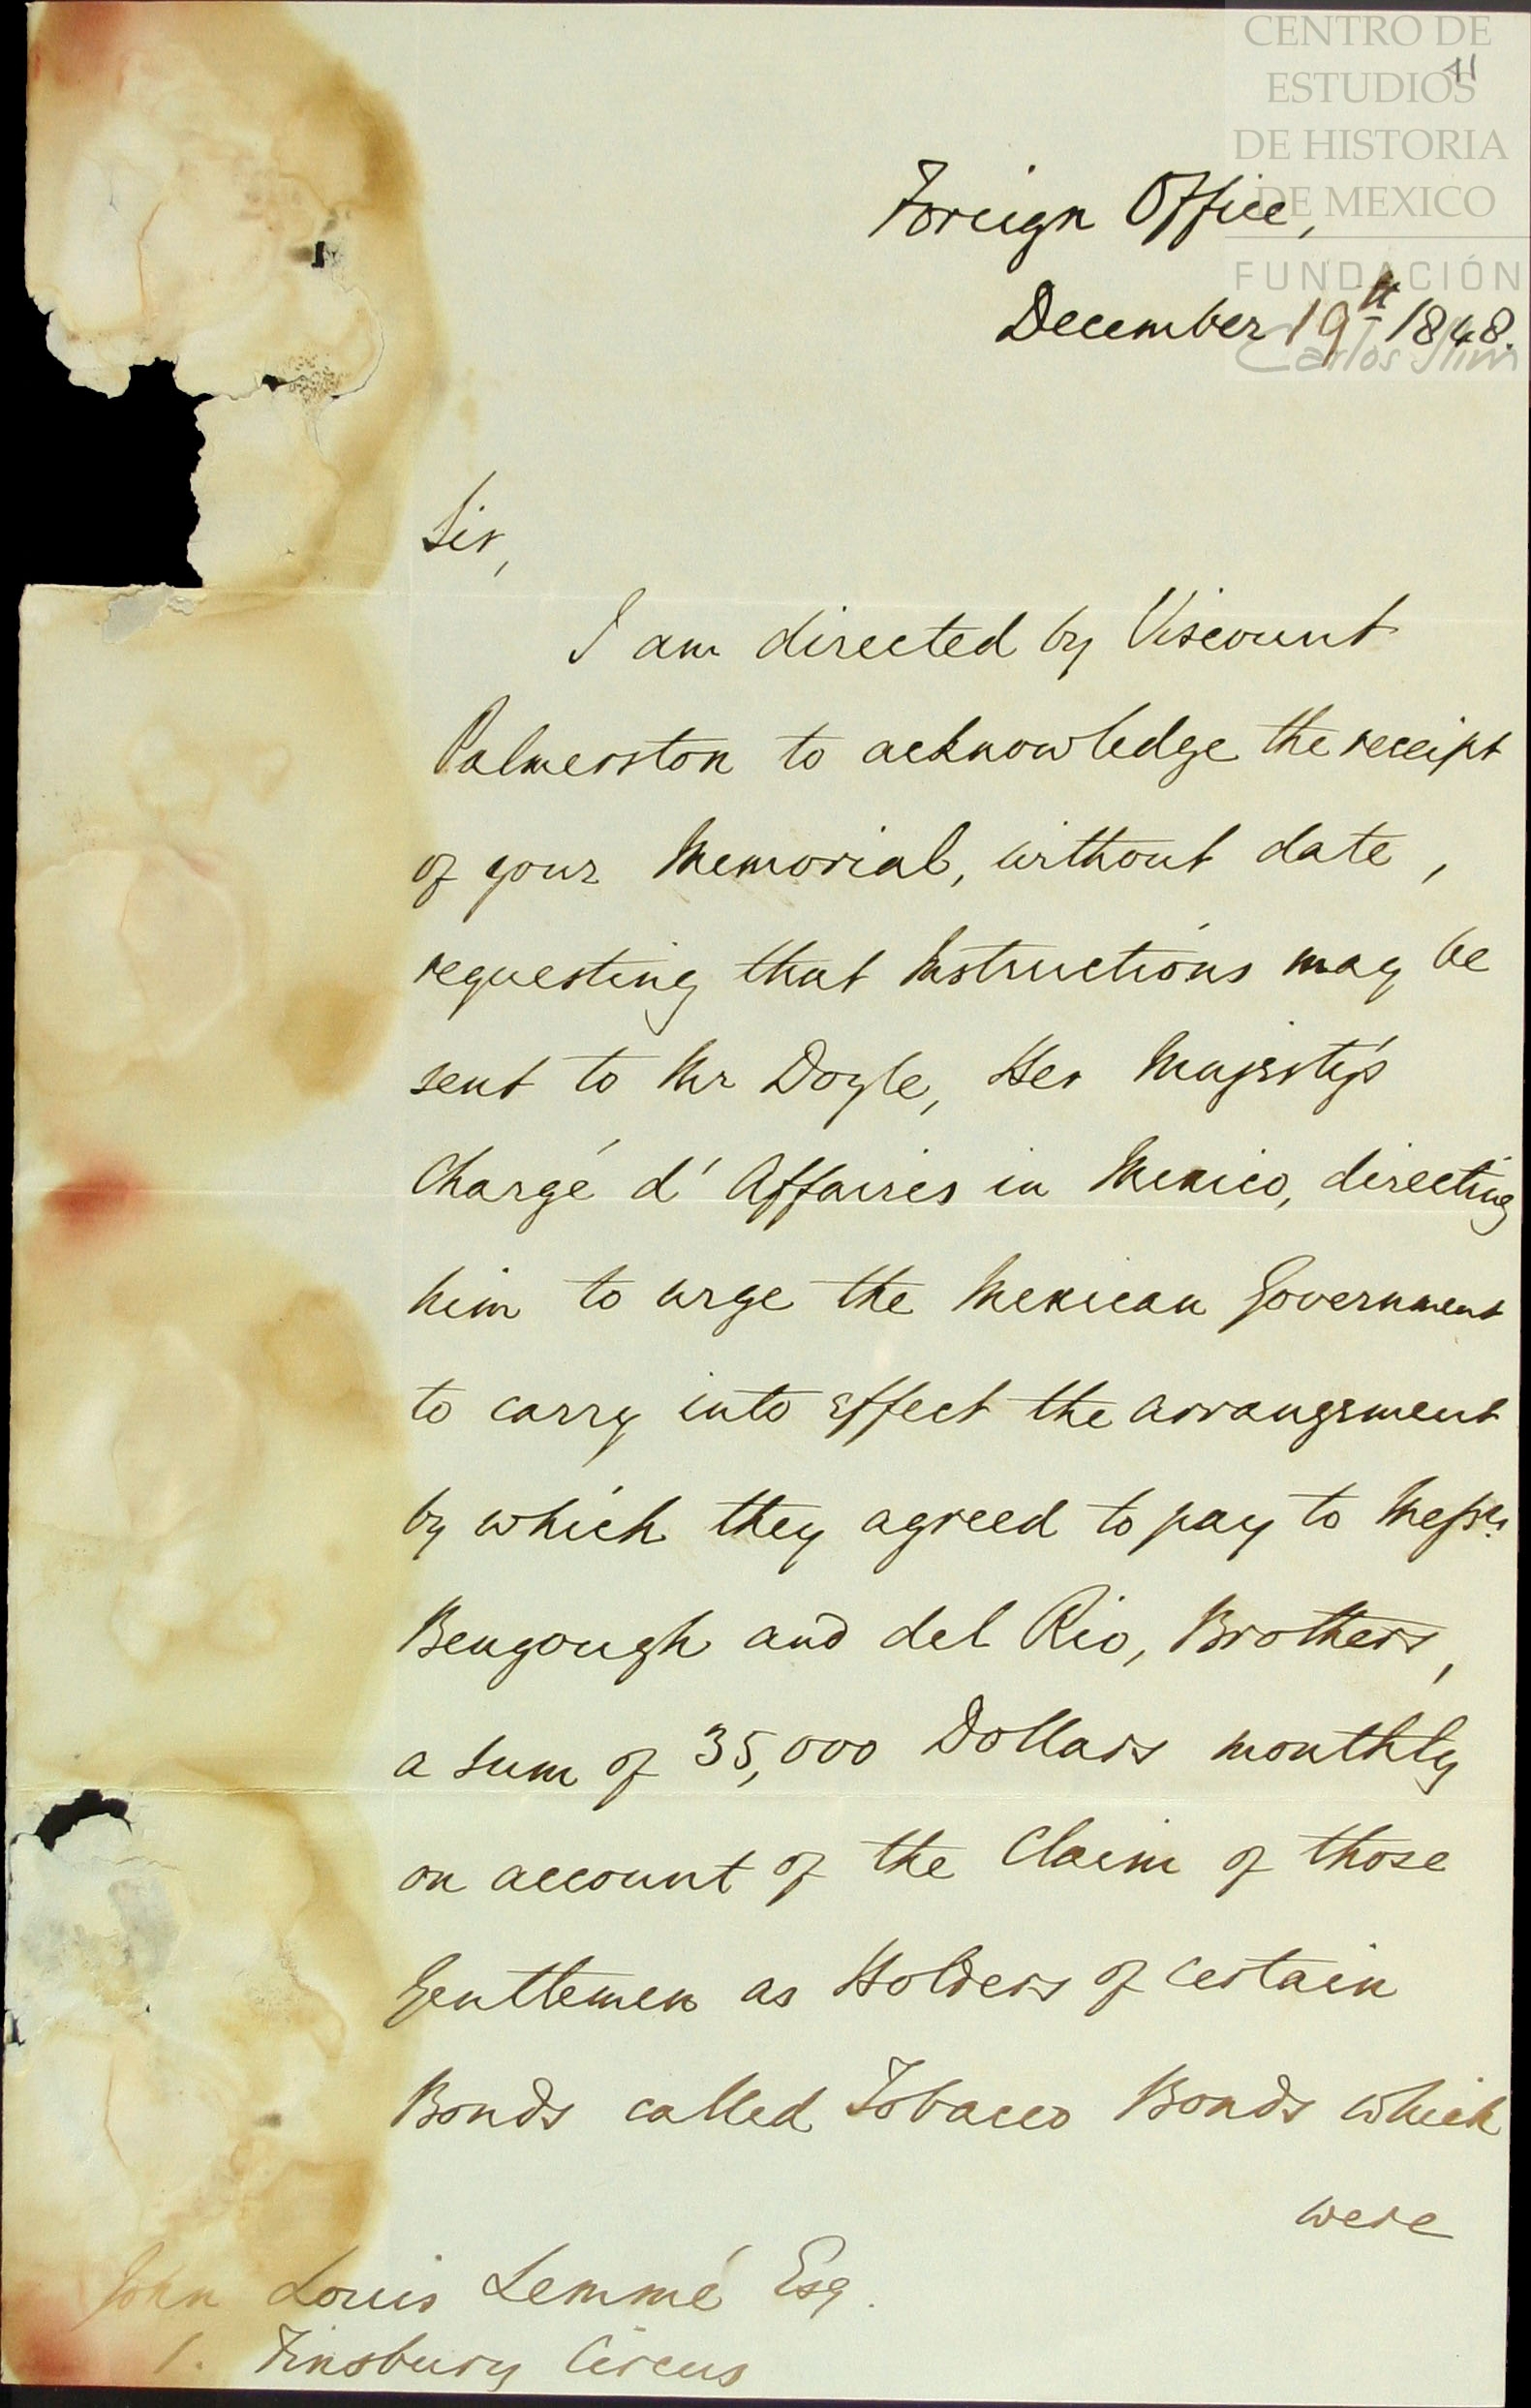 CENTRO DE
ESTUDIOS
DE HISTORIA
DE MEXICO
FUNDACIÓN
Carlos Slim
41
Foreign Office,
December 19th 1848.
Sir,
I am directed by Viscount
Palmerston to acknowledge the receipt
of your Memorial, without date,
requesting that Instructions may be
sent to Mr Doyle, Her Majesty's
Chargé d'Affaires in Mexico, directing
him to urge the Mexican Government
to carry into effect the arrangement
by which they agreed to pay to Messrs
Bengough and del Rio, Brothers,
a sum of 35,000 Dollars monthly
on account of the Claim of those
Gentlemen as Holders of certain
Bonds called Tobacco Bonds which
were
John Louis Lemmé Esq.
1. Finsbury Circus